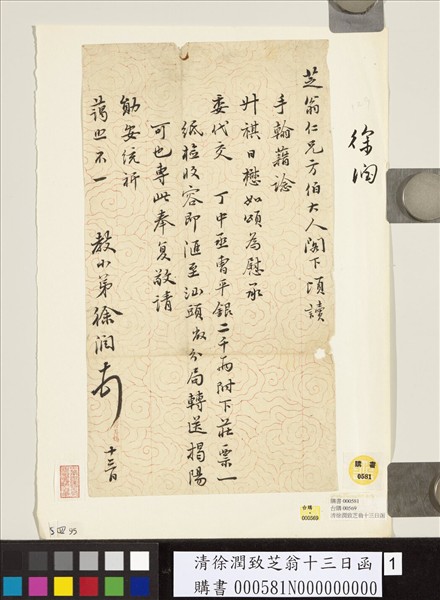 徐润
芝翁仁兄方伯大人閣下頃讀
手翰藉諗
升祺日懋如頌為慰承
委代交　丁中丞曹平銀二千兩附下莊票一
紙祗收容即滙至汕頭敝分局轉送揭陽
可也專此奉复敬請
勛安統祈
藹照不一　教小弟徐润頓
十三日
購書
0581
台購
000569
購書 000581
台購 00569
清徐潤致芝翁十三日函
清徐潤致芝翁十三日函
購書 000581N000000000
1